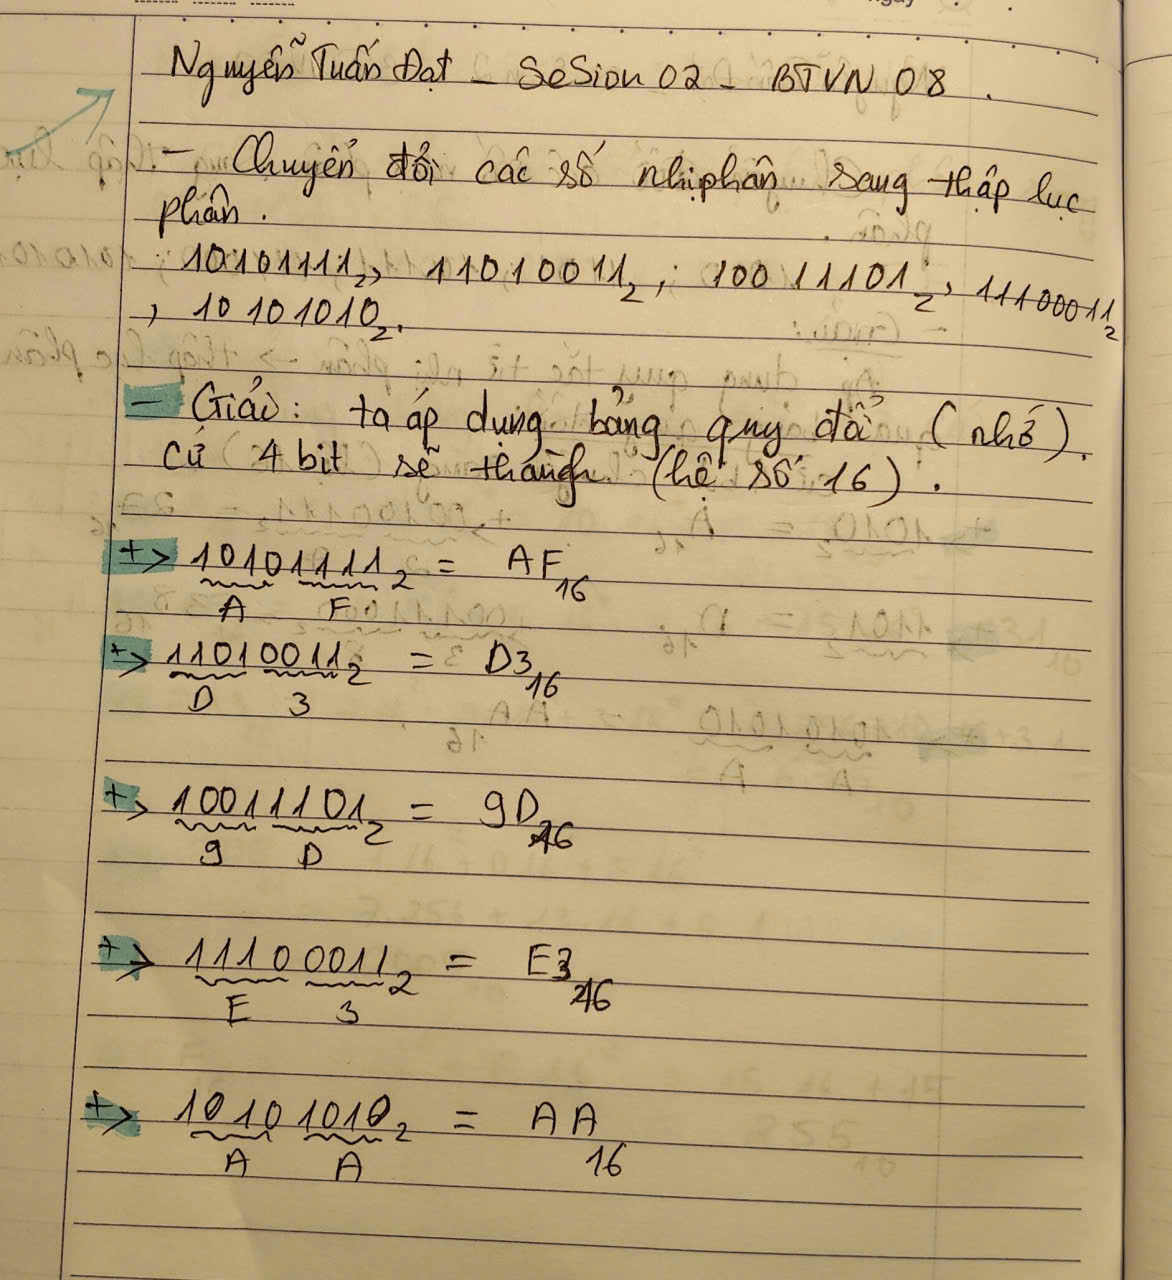 Nguyễn Tuấn Đạt - SeSion 02 - BTVN 08.
- Chuyển đổi các số nhị phân sang thập lục
phân.
10101111₂, 11010011₂; 10011101₂, 11100011₂
, 10101010₂.
- Giải: ta áp dụng bảng quy đổi (nhớ).
cứ 4 bit sẽ thành (hệ số 16).
+> 10101111₂ = AF₁₆
A F
+> 11010011₂ = D3₁₆
D 3
+> 10011101₂ = 9D₁₆
9 D
+> 11100011₂ = E3₁₆
E 3
+> 10101010₂ = AA₁₆
A A